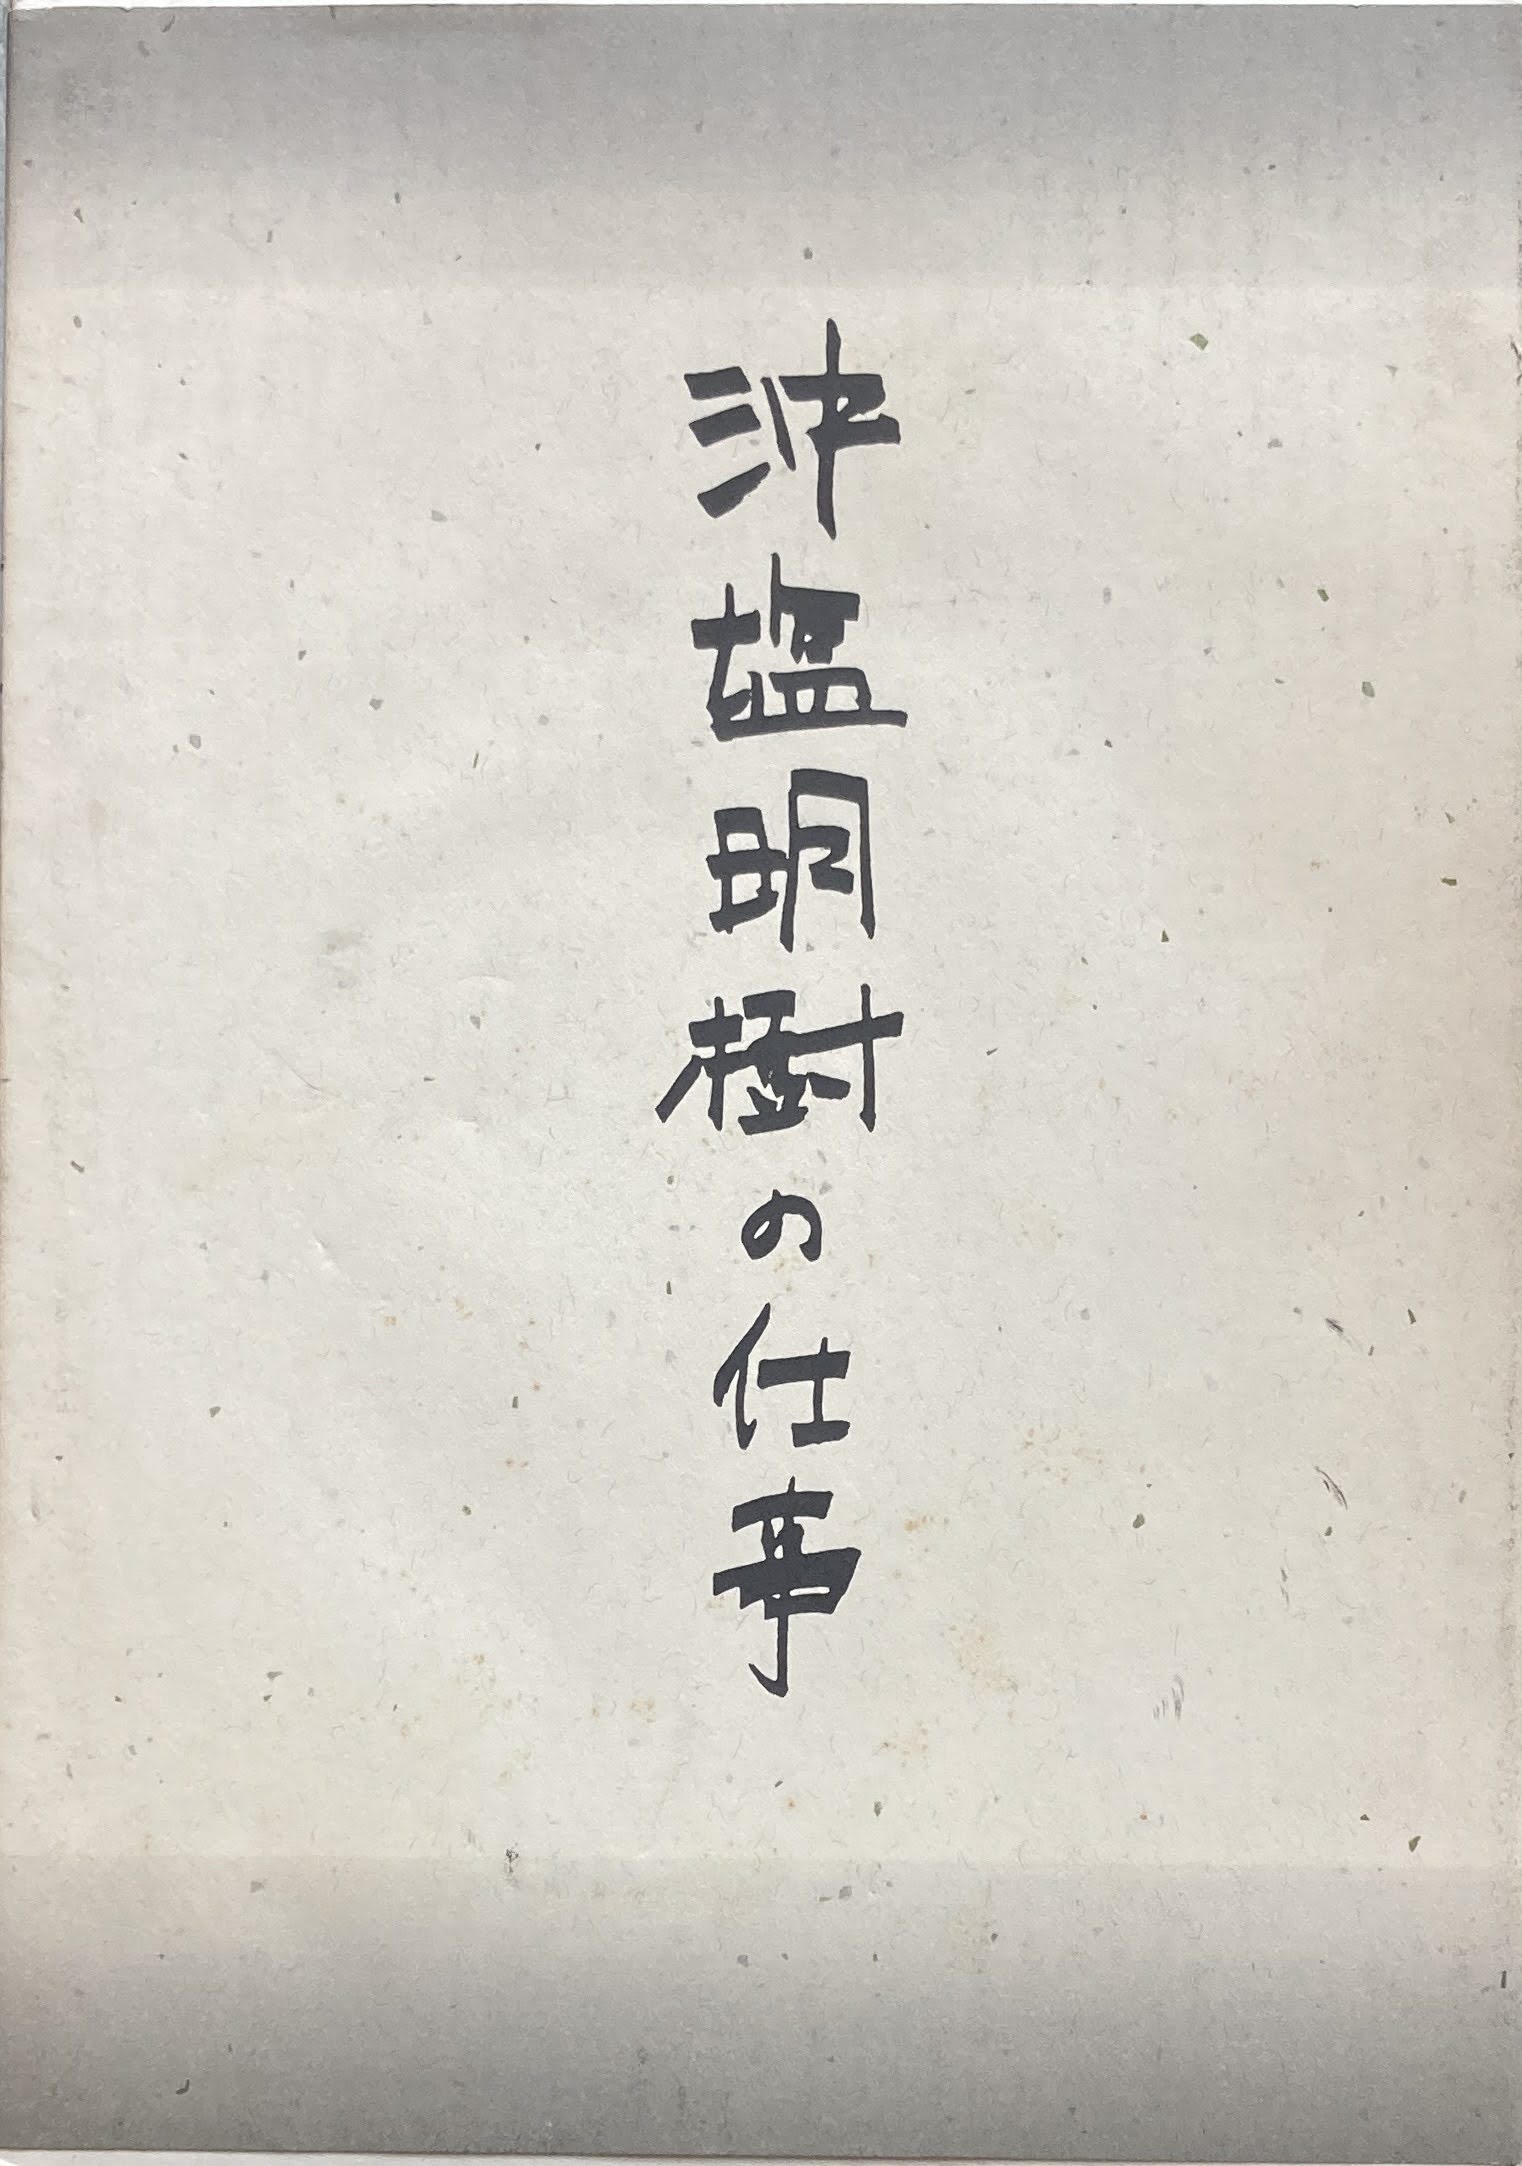 沖塩明樹の仕事